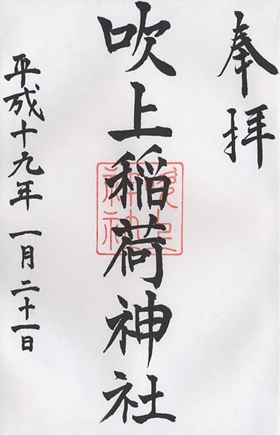 奉拝
吹上稲荷神社
平成十九年一月二十一日